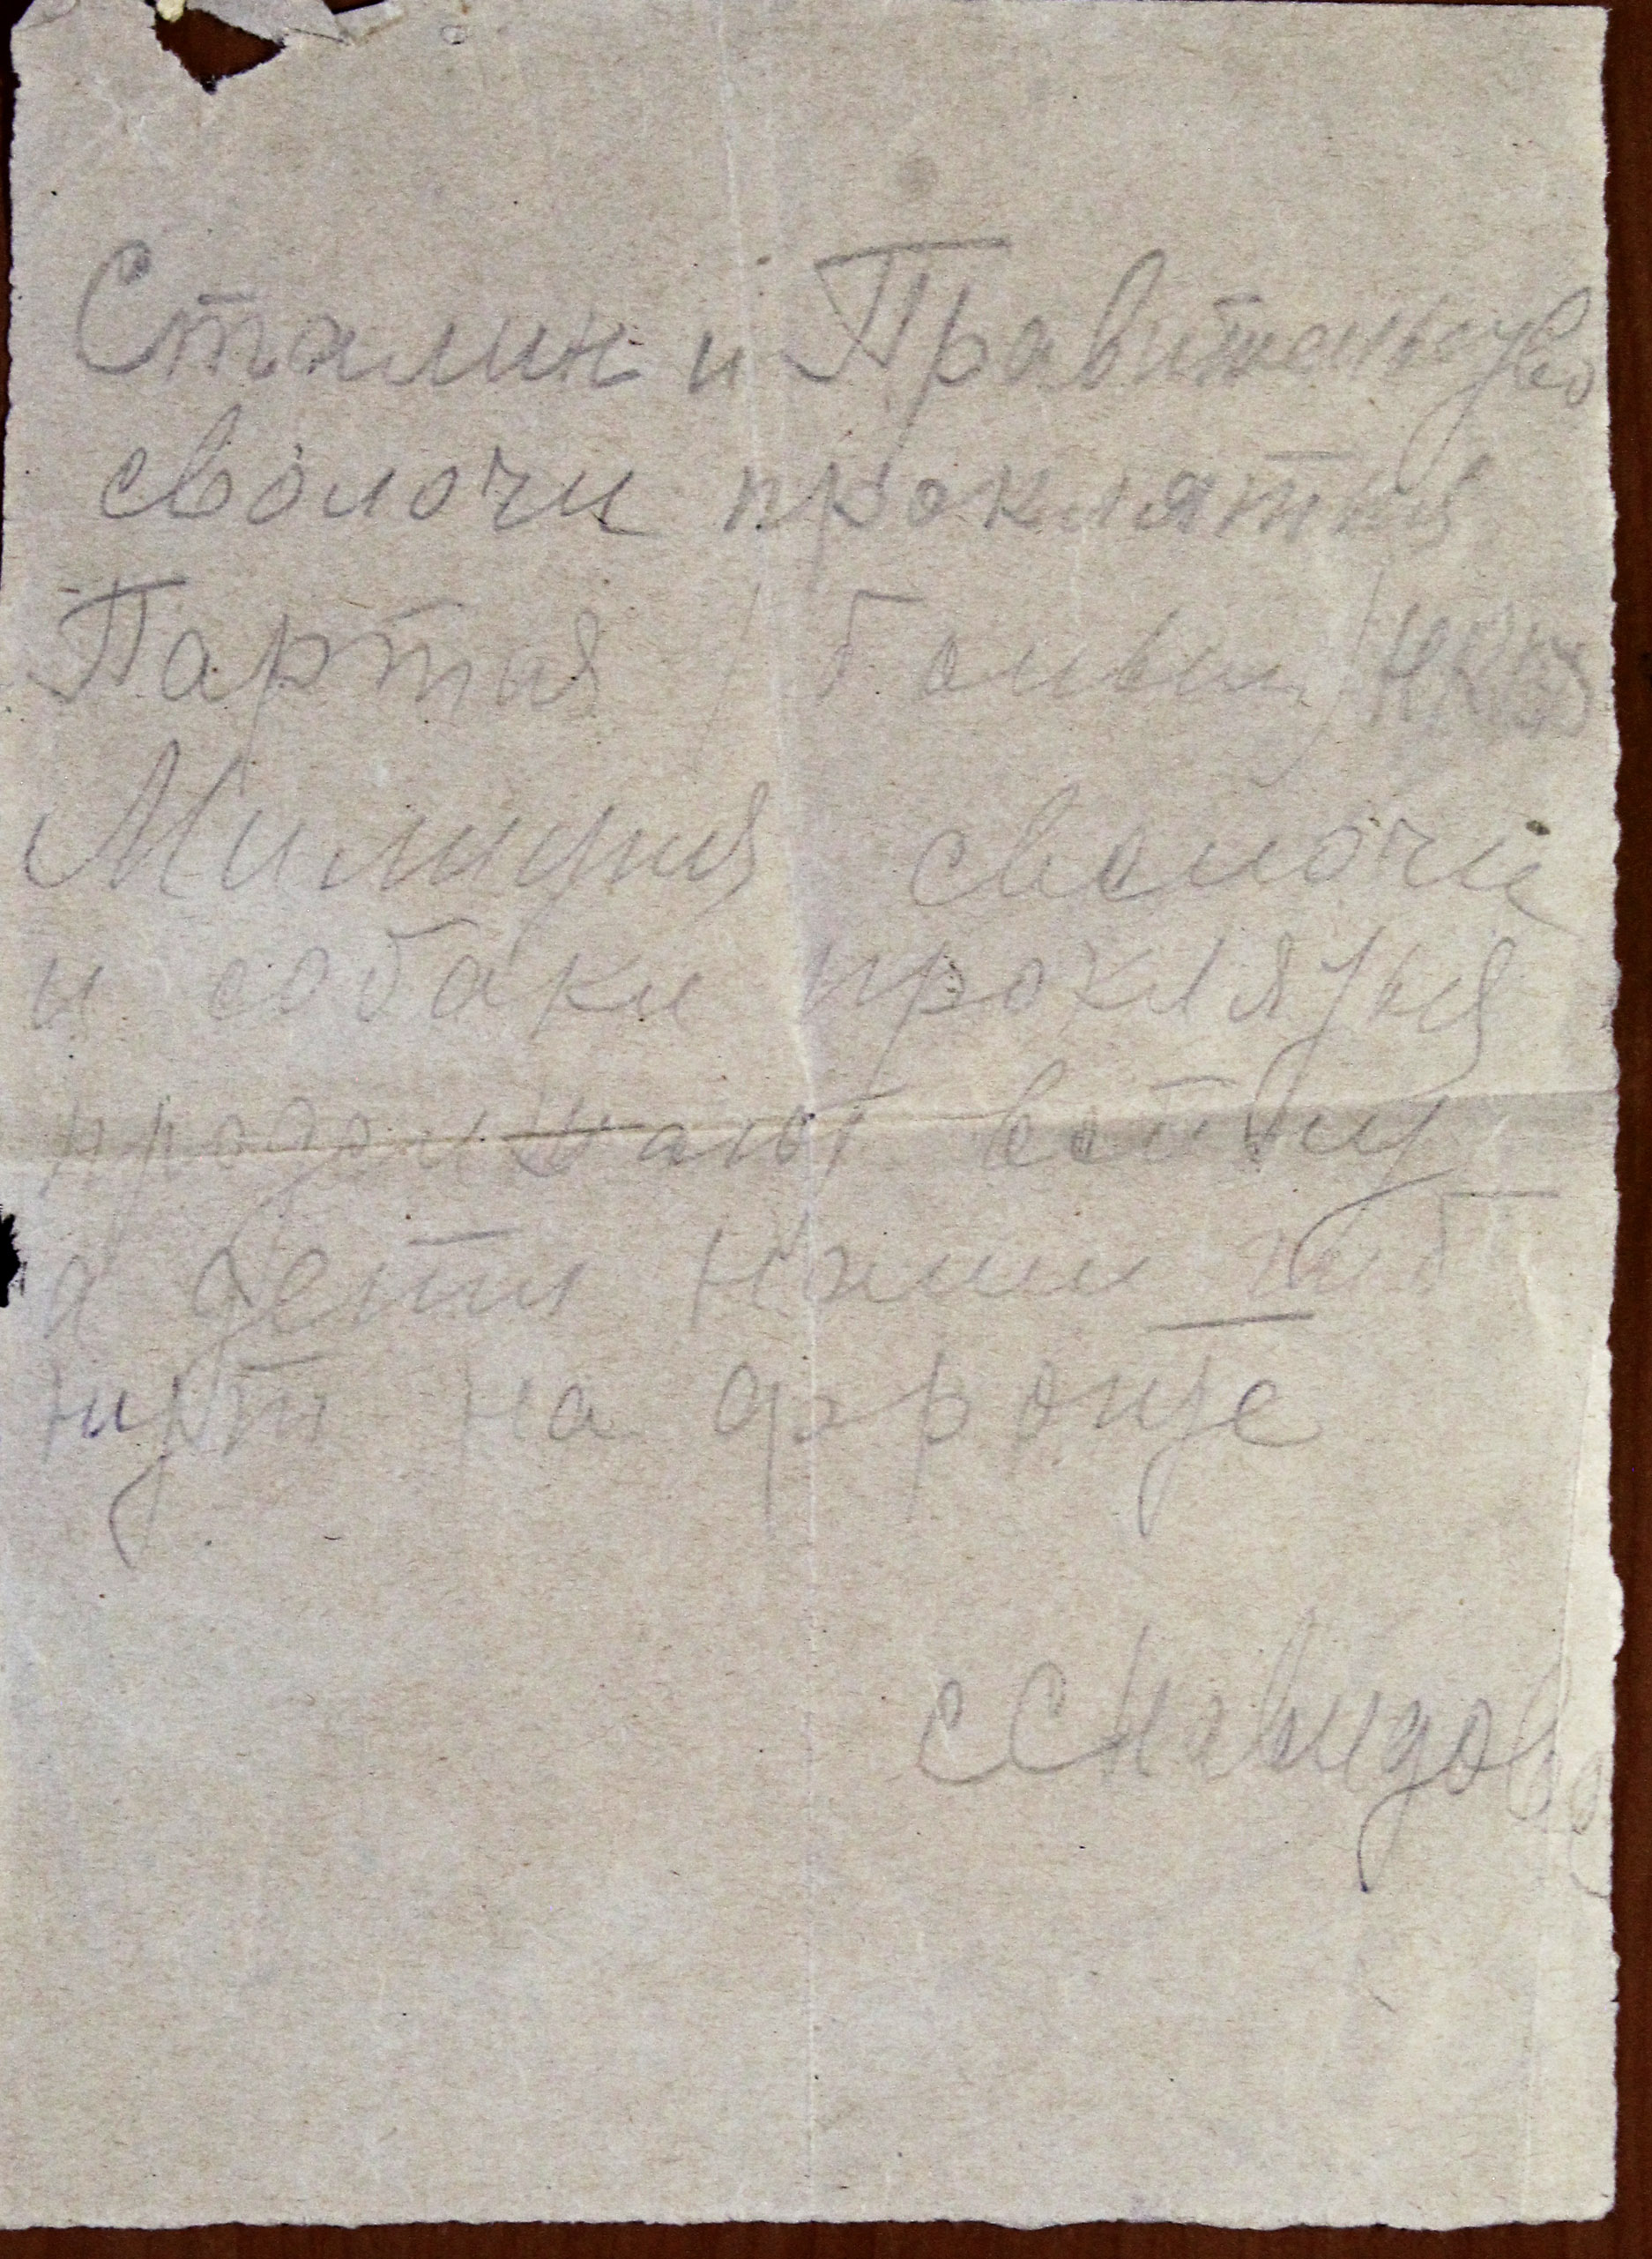 Сталин и Правительство
сволочи проклятыя
Партия / больш /
Милиция сволочи
и собаки проклятыя
продолжают войну
а дети наши гиб
нут на фронте